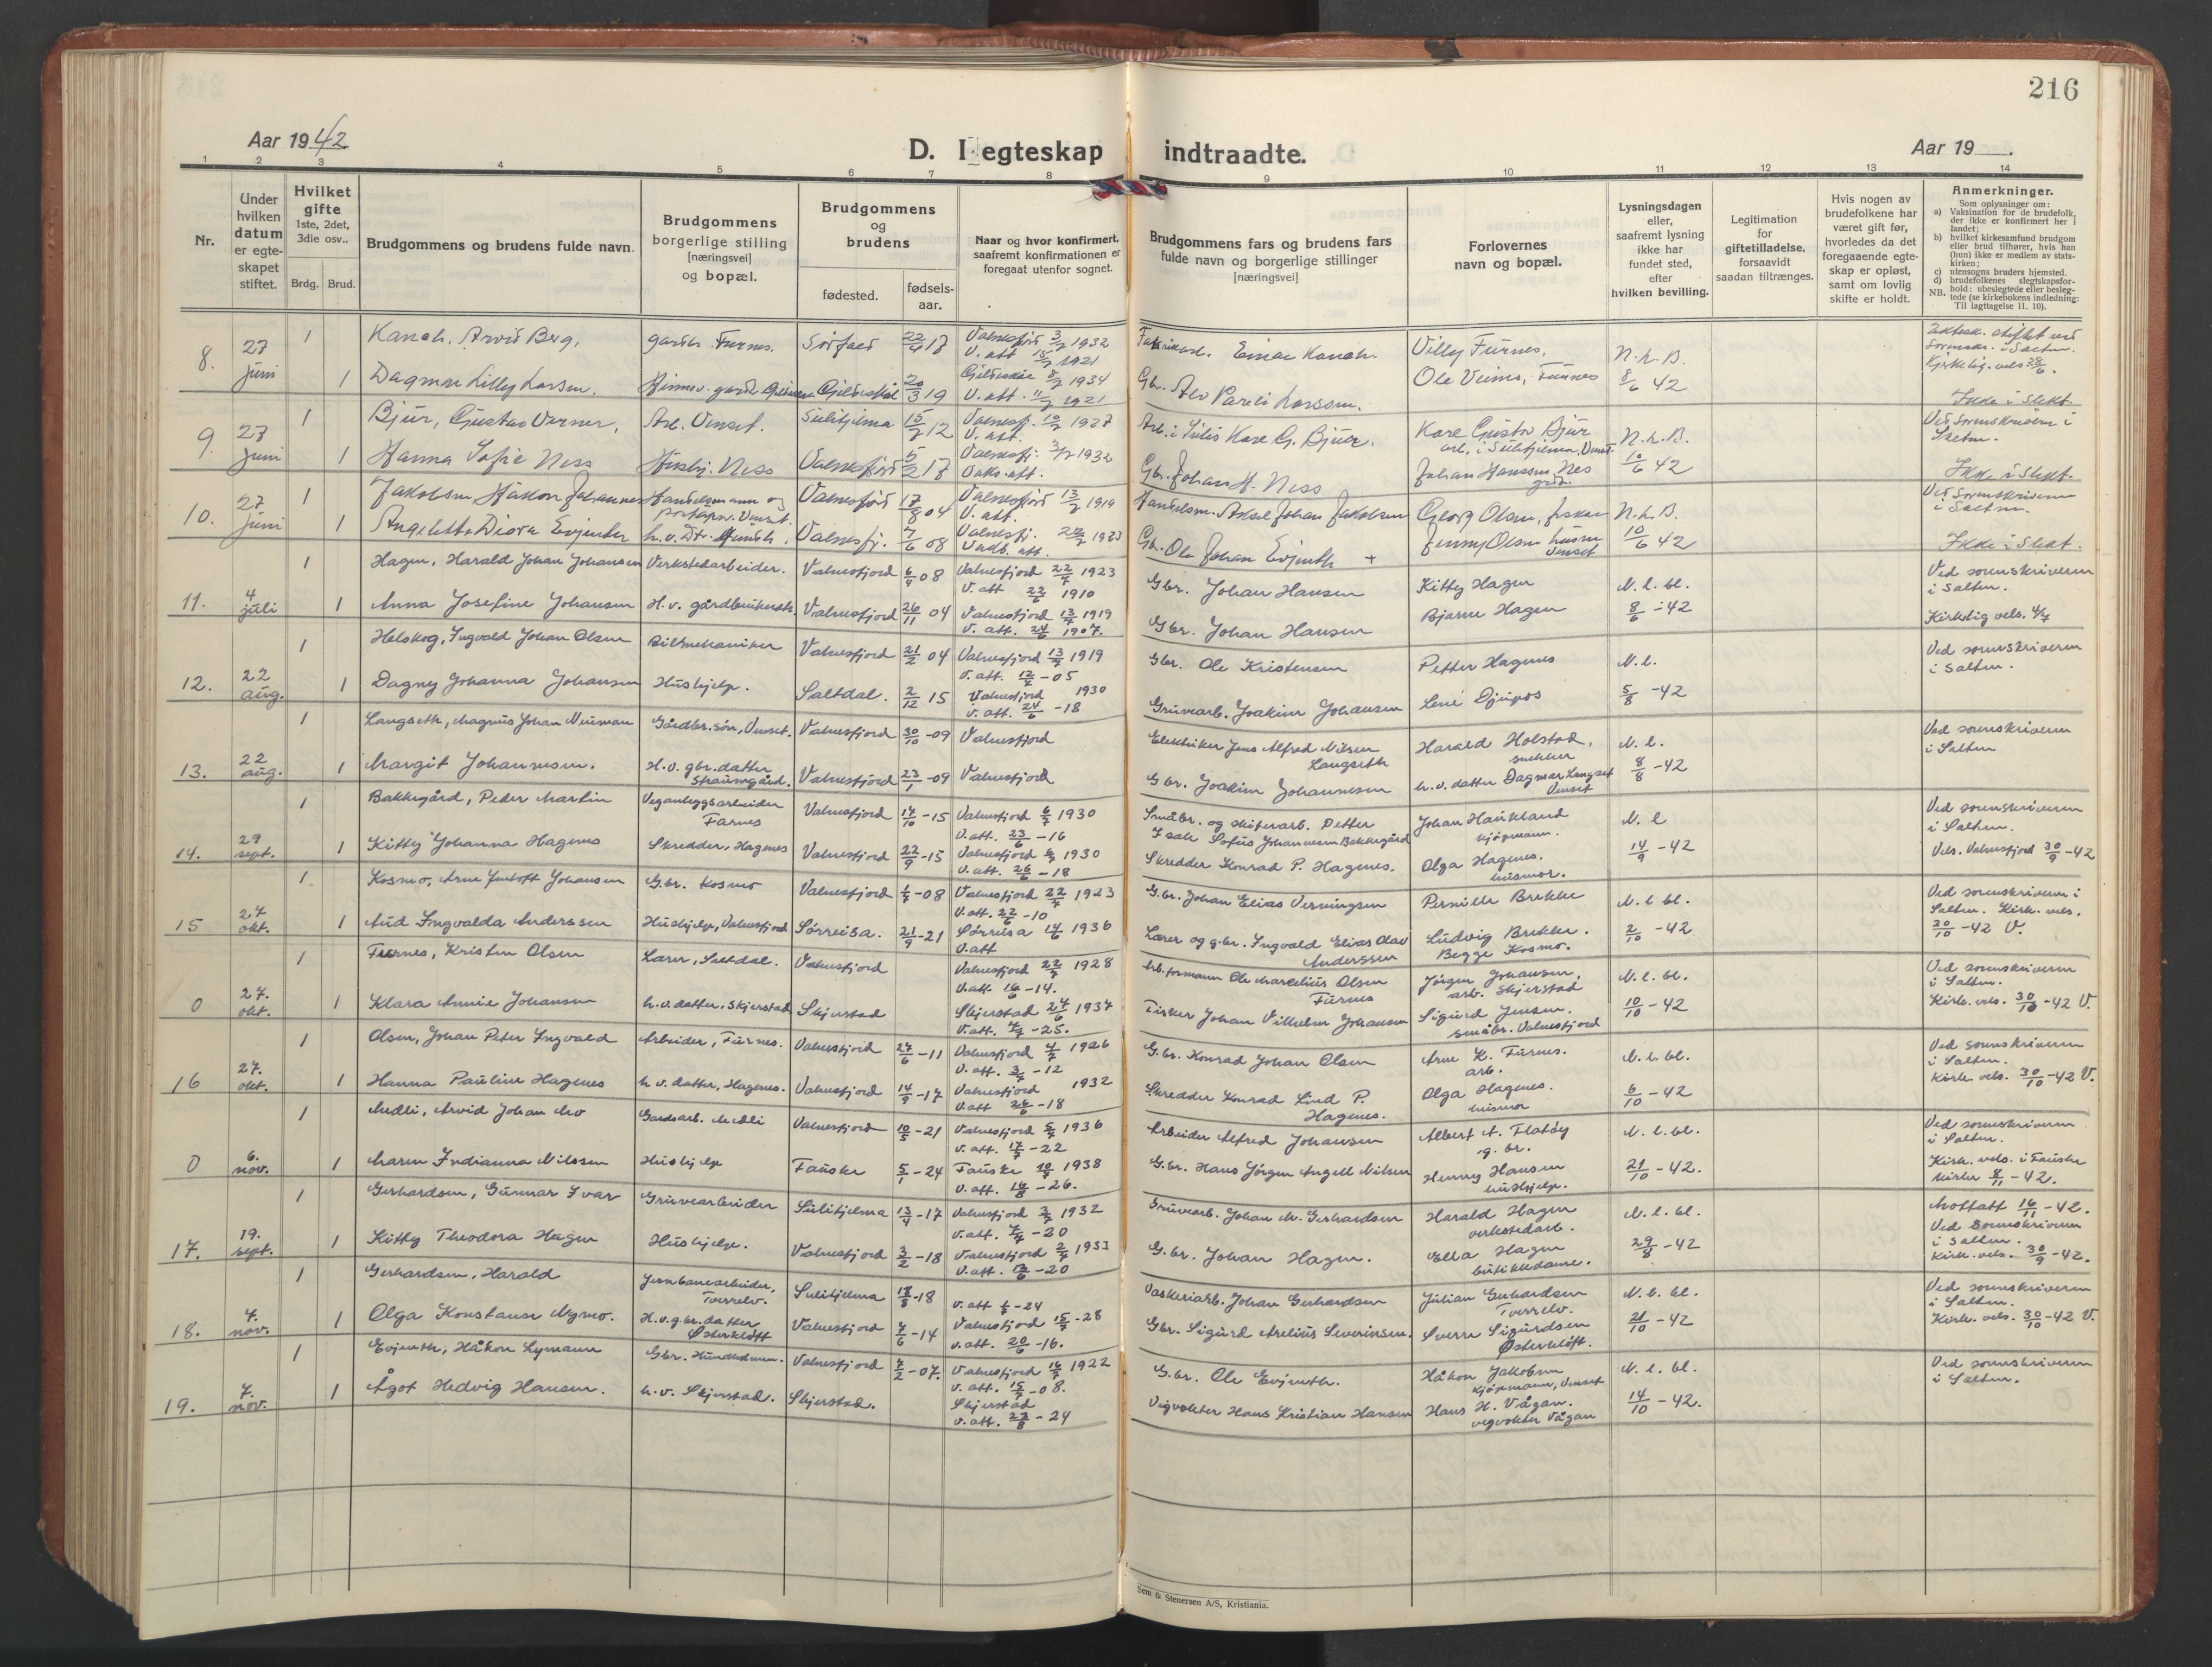 216
Aar 1942
D. I egteskap indtraadte.
Aar 19
1 2 3 4 5 6 7 8 9 10 11 12 13 14
Nr.
Under hvilken datum er egteskapet stiftet.
Hvilket gifte 1ste, 2det, 3die osv..
Brdg. Brud.
Brudgommens og brudens fulde navn.
Brudgommens borgerlige stilling [næringsvei] og bopæl.
Brudgommens og brudens
fødested.
fødsels-aar.
Naar og hvor konfirmert, saafremt konfirmationen er foregaat utenfor sognet.
Brudgommens fars og brudens fars fulde navn og borgerlige stillinger [næringsvei]
Forlovernes navn og bopæl.
Lysningsdagen eller, saafremt lysning ikke har fundet sted, efter hvilken bevilling.
Legitimation for giftetilladelse, forsaavidt saadan tiltrænges.
Hvis nogen av brudefolkene har været gift før, hvorledes da det foregaaende egteskap er opløst, samt om lovlig skifte er holdt.
Anmerkninger.
Som oplysninger om:
a) Vaksination for de brudefolk, der ikke er konfirmert her i landet;
b) hvilket kirkesamfund brudgom eller brud tilhører, hvis han (hun) ikke er medlem av statskirken;
c) utensogns bruders hjemsted.
d) brudefolkenes slegtskapsforhold: ubeslegtede eller beslegtede (se kirkebokens indledning: Til iagttagelse II. 10).
NB.
8. 27 juni 1 Arvid Berg, Furnes. 22/4 17 Valnesfjord 3/7 1932 Einar Villy Furnes, N.l.B.
V. att 15/7 1921
1 Dagmar Lilly Larsen. Gildeskål 20/3 19 Gildeskål 8/7 1934 Ole 8/6 42 Ikke i slekt.
V. att. 11/7 1921
9. 27 juni 1 Bjur, Gustav Verner, Arb. Venset. Sulitjelma 15/7 12 Valnesfj. 10/7 1927 Arb. i Sulis Kare G. Bjur. Kare Gustav Bjur N.l.B. Ved sorenskriveren i Salten.
V. att. arb. i Sulitjelma, Venset
1 Hanna Sofie Ness Husbj. Ness Valnesfjord 5/2 17 Valnesfj. 3/7 1932 Gbr. Johan H. Ness Johan Hanssen Nes 10/6 42 Ikke i slekt.
10. 27 juni 1 Jakobsen Håkon Johannes Handelsmann og Venset. Valnesfjord 17/8 04 Valnesfjord 13/7 1919 Handelsm. Aksel Johan Jakobsen Georg Olsen, fisker N.l.B. Ved Sorenskriveren i Salten.
V. att.
1 Angeletta Diora Evjenth Valnesfj. 7/6 08 Valnesfj. 1923 Gbr. Ole Johan Evjenth + Jenny Olsen husm. Venset 10/6 42 Ikke i slekt.
11. 4 juli 1 Hagen, Harald Johan Johansen Verkstedarbeider. Valnesfjord 6/4 08 Valnesfjord 22/7 1923 Gbr. Johan Hansen Kitty Hagen N.l. bl. Ved sorenskriveren i Salten.
V. att 22/6 1910
1 Anna Josefine Johansen H.v. gårdbrukerdtr. Valnesfjord 26/11 04 Valnesfjord 13/7 1919 Gbr. Johan Hansen Bjarne Hagen 8/6 -42 Kirkelig vels. 4/7
V. att. 24/6 1907.
12. 22 aug. 1 Helskog, Ingvald Johan Olsen Bilmekaniker Valnesfjord 21/2 04 Valnesfjord 13/7 1919 Gbr. Ole Kristensen Petter Hagenes N.l. Ved sorenskriveren i Salten.
V. att. 12/7 -05
1 Dagny Johanna Johansen Hushjelp. Saltdal. 2/12 15 Valnesfjord 1930 Gruvearb. Joakim Johansen Lene Djupos 5/8 -42
V. att. 24/6 -18
13. 22 aug. 1 Langseth, Magnus Johan Neuman Gårdbr. søn, Venset. Valnesfjord 30/10 -09 Valnesfjord Elektriker Jens Alfred Nilsen Langseth Harald Holstad, snekker N.l. Ved sorenskriveren i Salten
1 Margit Johannesen. H.v. gbr. datter Straumgård. Valnesfjord 23/1 -09 Valnesfjord Gbr. Joakim Johannesen h.v. datter Dagmar Langset Venset 8/8 -42
14. 29 sept. 1 Bakkegård, Peder Martin Veganleggsarbeider Farnes Valnesfjord 17/10 -15 Valnesfjord 6/7 1930 Småbr. og skiferarb. Petter Isak Sofus Johannesen Bakkegård Johan Haukland kjøpmann. N.l Ved sorenskriveren i Salten.
V. att. 23/6 -16
1 Kitty Johanna Hagenes Skredder, Hagenes Valnesfjord 22/9 -15 Valnesfjord 6/7 1930 Skredder Konrad P. Hagenes. Olga Hagenes. husmor. 14/9 -42 Vels. Valnesfjord 30/9 -42
V. att. 26/6 -18
15 27 okt. 1 Kosmo, Arne Johansen G.br. Kosmo Valnesfjord 1/7 -08 Valnesfjord 22/7 1923 G.br. Johan Elias Verningsen Pernille Brekke N.l bl. Ved sorenskriveren i Salten. Kirk. vels. 30/10 -42 V.
V. att. 22/6 -10
1 Aud Ingvalda Anderssen Hushjelp, Valnesfjord Sørreisa. 21/9 -21 Sørreisa 14/6 1936 Lærer og g.br. Ingvald Elias Olav Anderssen Ludvig Brekke. Begge Kosmo. 2/10 -42
V. att
0 27. okt. 1 Furnes, Kristen Olsen Lærer, Saltdal. Valnesfjord Valnesfjord 22/7 1928 Arb.formann Ole Marcelius Olsen Furnes Jørgen Johansen, arb. Skjerstad N.l. bl. Ved sorenskriveren i Salten.
V. att. 16/6 -14.
1 Klara Annie Johansen h.v. datter, Skjerstad Skjerstad Skjerstad 27/6 1937 Fisker Johan Vilhelm Johansen Sigurd Jensen. småbr. Valnesfjord 10/10 -42 Kirk. vels. 30/10 -42 V.
V. att. 4/7 -25.
16 27. okt. 1 Olsen, Johan Peter Ingvald Arbeider, Furnes. Valnesfjord 27/6 -11 Valnesfjord 4/7 1926 G.br. Konrad Johan Olsen Arne K. Furnes. arb. N.l. bl. Ved sorenskriveren i Salten.
V. att. 3/7 -12
1 Hanna Pauline Hagenes h.v. datter, Hagenes. Valnesfjord 14/9 -17 Valnesfjord 1932 Skredder Konrad Lind P. Hagenes. Olga Hagenes. husmor 6/10 -42 Kirk. vels. 30/10 -42 V.
V. att 26/6 -18
0 6. nov. 1 Medli, Arvid Johan Mo Gardsarb. Medli Valnesfjord 10/5 -21 Valnesfjord 5/7 1936 Arbeider Alfred Johansen Albert A. Flatøy g.br. N.l. bl. Ved sorenskriveren i Salten.
V. att. 17/7 -22
1 Maren Indianna Nilssen Hushjelp Fauske 5/1 -24 Fauske 10/7 1938 G.br. Hans Jørgen Angell Nilsen Henny Hansen hushjelp. 21/10 -42. Kirk. vels. i Fauske kirke 8/11 -42.
V. att. 16/8 -26.
17. 19. sept. 1 Gerhardsen, Gunnar Ivar Gruvearbeider Sulitjelma 13/4 -17 Valnesfjord 3/7 1932 Gruvearb. Johan M. Gerhardsen Harald Hagen verkstedarb. N.l. bl. Mottatt 16/11 -42. Ved sorenskriveren i Salten.
V. att. 4/7 -20
1 Kitty Theodora Hagen Hushjelp. Valnesfjord 3/2 -18 Valnesfjord 2/7 1933 G.br. Johan Hagen. Ella Hagen butikkdame. 29/8 -42 Kirk. vels. 30/9 -42.
V. att. 12/6 -20
18. 7. nov. 1 Gerhardsen, Harald Jernbanearbeider, Tverrelv. Sulitjelma 18/8 -18 V. att -24 Vaskeriarb. Johan Gerhardsen Julian Gerhardsen Tverrelv. N.l. bl. Ved sorenskriveren i Salten.
1 Olga Konstanse Nymo. H.v.g.br. datter Østerkløft Valnesfjord 4/6 -14 Valnesfjord 15/7 -28 Gbr. Sigurd Arelius Severinsen. Sverre Sigurdsen Østerkløft. 21/10 -42 Kirk. vels. 30/10 -42 V.
V. att. 20/6 -16.
19. 7. nov. 1 Evjenth, Håkon Lymann Gbr. Valnesfjord 4/2 -07. Valnesfjord 16/7 1922 G.br. Ole Evjenth. Håkon Jakobsen kjøpmann, Venset N.l. bl. Ved sorenskriveren i Salten.
V. att. 15/7 -08.
1 Ågot Hedvig Hansen. h.v. Skjerstad. Skjerstad. Skjerstad Vegvokter Hans Kristian Hansen Hans H. Vågan. vegvokter Vågan 14/10 -42.
V. att. 22/8 -24
Sem & Stenersen A/S, Kristiania.